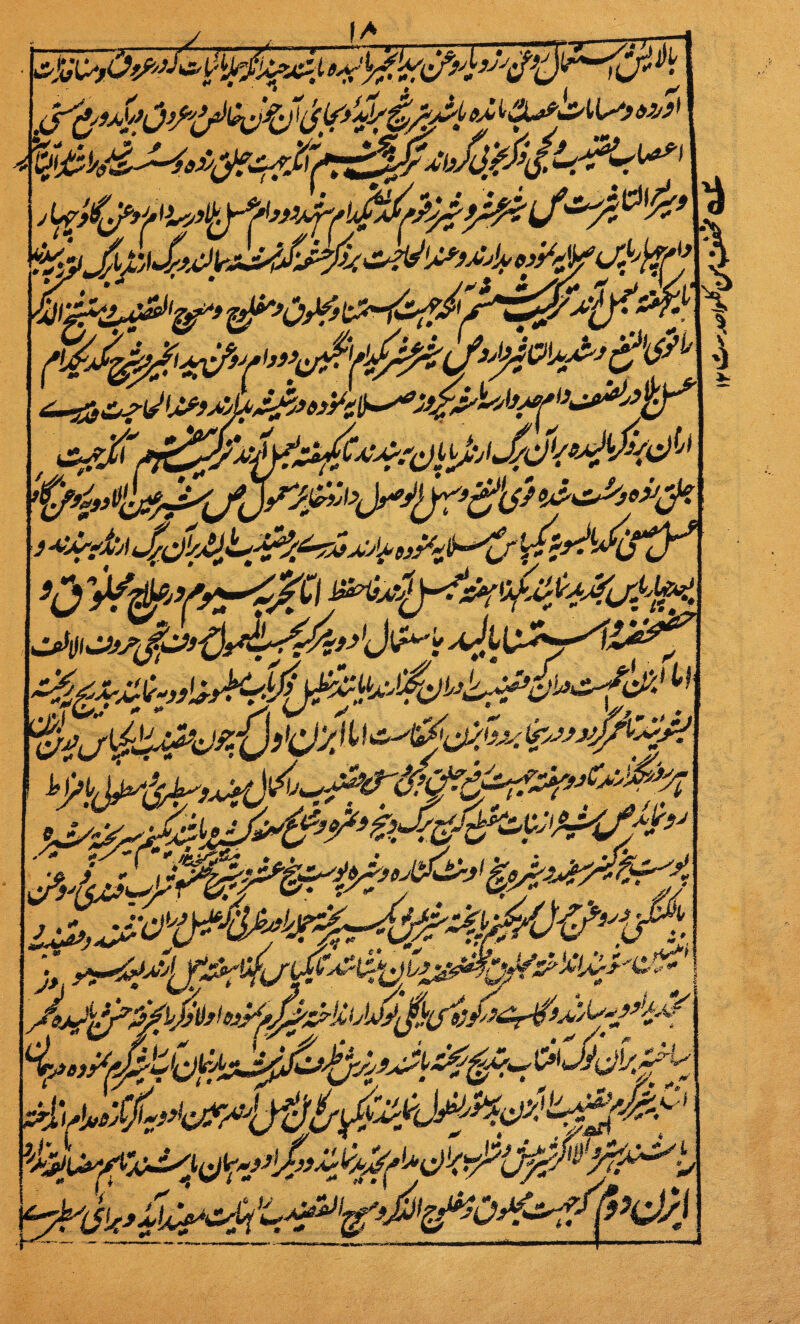 ۱۸
بالایش استعمال روغن زرد یا روغن بیدانجیر مالیده باشند چندانکه جمله مائیات که در عروق و منافذات
آورده و مسامات عصب مانده باشد بتر شیح برآید و بجای آن خون خالص در عروق درآید و رفع سستی
اعصاب قضیب و کجی ذکر بخوبی گرداند ترکیب پنجم آنکه جهت جلق زده و سست شده را شدید التاثیر
و سریع التاثیرست ص شیر عشر و شیر زقوم هکذا یکدام شهد دو دام عسل بلادر سه دام روغن گاو چهار
دام چهار پاس صلایه نموده بدارند و عندالحاجت بر ذکر حشفه گذاشته بمالند و برگ ارنڈ یا برگ
تا یکهفته بعمل آرند ترکیب ششم آنکه جهت استمنا و مجلوق و مفلوج و معوج القضیب و متشنج الذکر
را قوی النفع و شدید التاثیر دارد ص شیر عشر یکدام انگبین دو دام روغن بیدانجیر و شرح هکذا یکدام
عسل بلادر نصف دام جدوار سه ماشه یکروز صلایه نموده در شیشه بدارند و عندالحاجت قدرے
ازان بر ذکر مالیده بر آن برگ ارنڈ یا پان به بندند تا یکهفته بعمل آرند ترکیب هفتم آنکه جهت
جلق زده و سست شده قوی النفع و سهل الوصول دارد ذخایر معمول ص شیر عین الادویه روغن گاو
عسل مصفی هکذا بالسویه یکپاس صلایه نموده بدارند قدرے بر قضیب مالیده بر آن برگ ارنڈ به بندند و
بعد چهار پاس تجدید نمایند هکذا هفته بعمل آرند فاحفظ اما تجربه سیوم در علاج مجلوق و
خضخضه و استمنا بالید باستعمال ادویه مرکبه بحسب المعمول حروف تهجی حروف الالف
اما آبزن اعم ست در آن که قضیب را در آن بگذارند یا مانند تنطیل ذکر بآب مطبوخه ادویه نمایند بتدریج ریخته
بشویند تا محمر گردد و درینجا بر دو آبزن اکتفاست اما آبزن اول که چون قضیب را یکپاس درین آبزن
هر روز بگذارند تا دو هفته جهت رفع جلق و کجی و سستی قضیب را کمال مفید و سطبری و مطولی بافراط
رو نماید ص شیره از نبات مقطع که بمع برگ و بیخ و ثمره و شاخ کشیده باشند یکنیم سیر پخته شیره
پوست بیخ کنیر سفید و شیره بیخ اونٹ کٹاره و شیره پوست بیخ عشر و شیرج شراب قندی و روغن
مالکنگنی و روغن خردل یکنیم پا پخته شیر میش یک سیر پخته جمله را در ظرفی که علیل در آن نشیند و قضیب و
انثیین شوئید انداخته مجلوق و خضخضه در آن بنشانند تا یکپاس هکذا هفته بعمل آرند بعد سیوم روز
تجدید ادویه سازند و گاهے در کوزه مسی یا گلی نوکدار انداخته شیرگرم نموده اولا ذکر را بخرقه خشن مالیده محمر
ساخته بر آن نوک آفتاب بتدریج ریخته باشند و زیرش ظرف گذاشته باز همان آب را شیرگرم نموده در همان
آب شیرگرم قضیب را آبزن بدستور بطول نمایند تا یکپاس کامل بعمل آرند همین ادویه اگر تازه مدام انداخته
باشند بهتر والا اگر شیر میش و شراب بر آن مدام تجدید نمایند و دیگر ادویه همان باشند تاهم مضایقه ندارد
آبزن دوم که جهت مجلوق و مفلوج الذکر و معوج القضیب را نهایت مفید آید و برای سطبرے